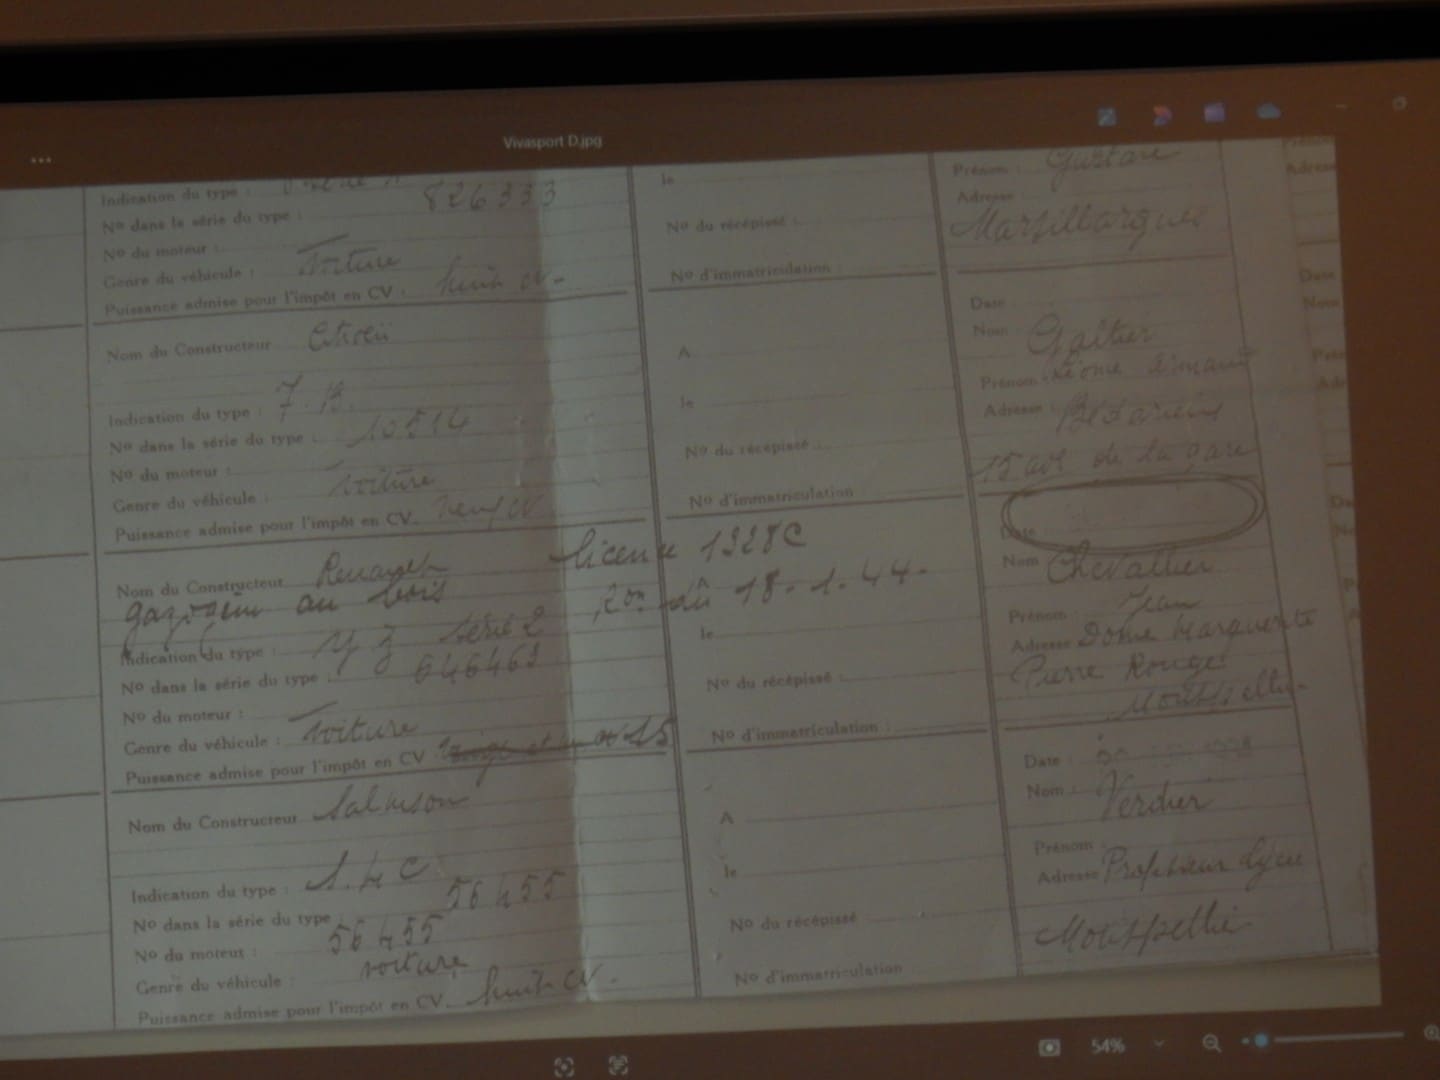 ...
Vivasport D.jpg
Indication du type :
N° dans la série du type : 826333
N° du moteur :
Genre du véhicule : Voiture
Puissance admise pour l'impôt en CV : huit CV -
le
N° du récépissé :
N° d'immatriculation :
Prénom : Gustave
Adresse
Marsillargues
Nom du Constructeur Citroën
Indication du type : 7. B.
N° dans la série du type : 10514
N° du moteur :
Genre du véhicule : Voiture
Puissance admise pour l'impôt en CV. neuf CV
A
le
N° du récépissé :
N° d'immatriculation :
Date
Nom Galtier
Prénom
Adresse : Bédarieux
15 av. de la gare
Nom du Constructeur Renault licence 1328C
gazogène au bois du 18-1-44-
Indication du type : série 2
N° dans la série du type : 646463
N° du moteur :
Genre du véhicule : Voiture
Puissance admise pour l'impôt en CV 15
A
le
N° du récépissé :
N° d'immatriculation :
Date
Nom Chevallier
Prénom : Jean
Adresse Dome Marguerite
Pierre Rouge
Montpellier
Nom du Constructeur Salmson
Indication du type : S. 4 C
N° dans la série du type 56455
N° du moteur : 56455
Genre du véhicule : voiture
Puissance admise pour l'impôt en CV. huit CV.
A
le
N° du récépissé
N° d'immatriculation
Date :
Nom : Verdier
Prénom :
Adresse Professeur Lycée
Montpellier
54%